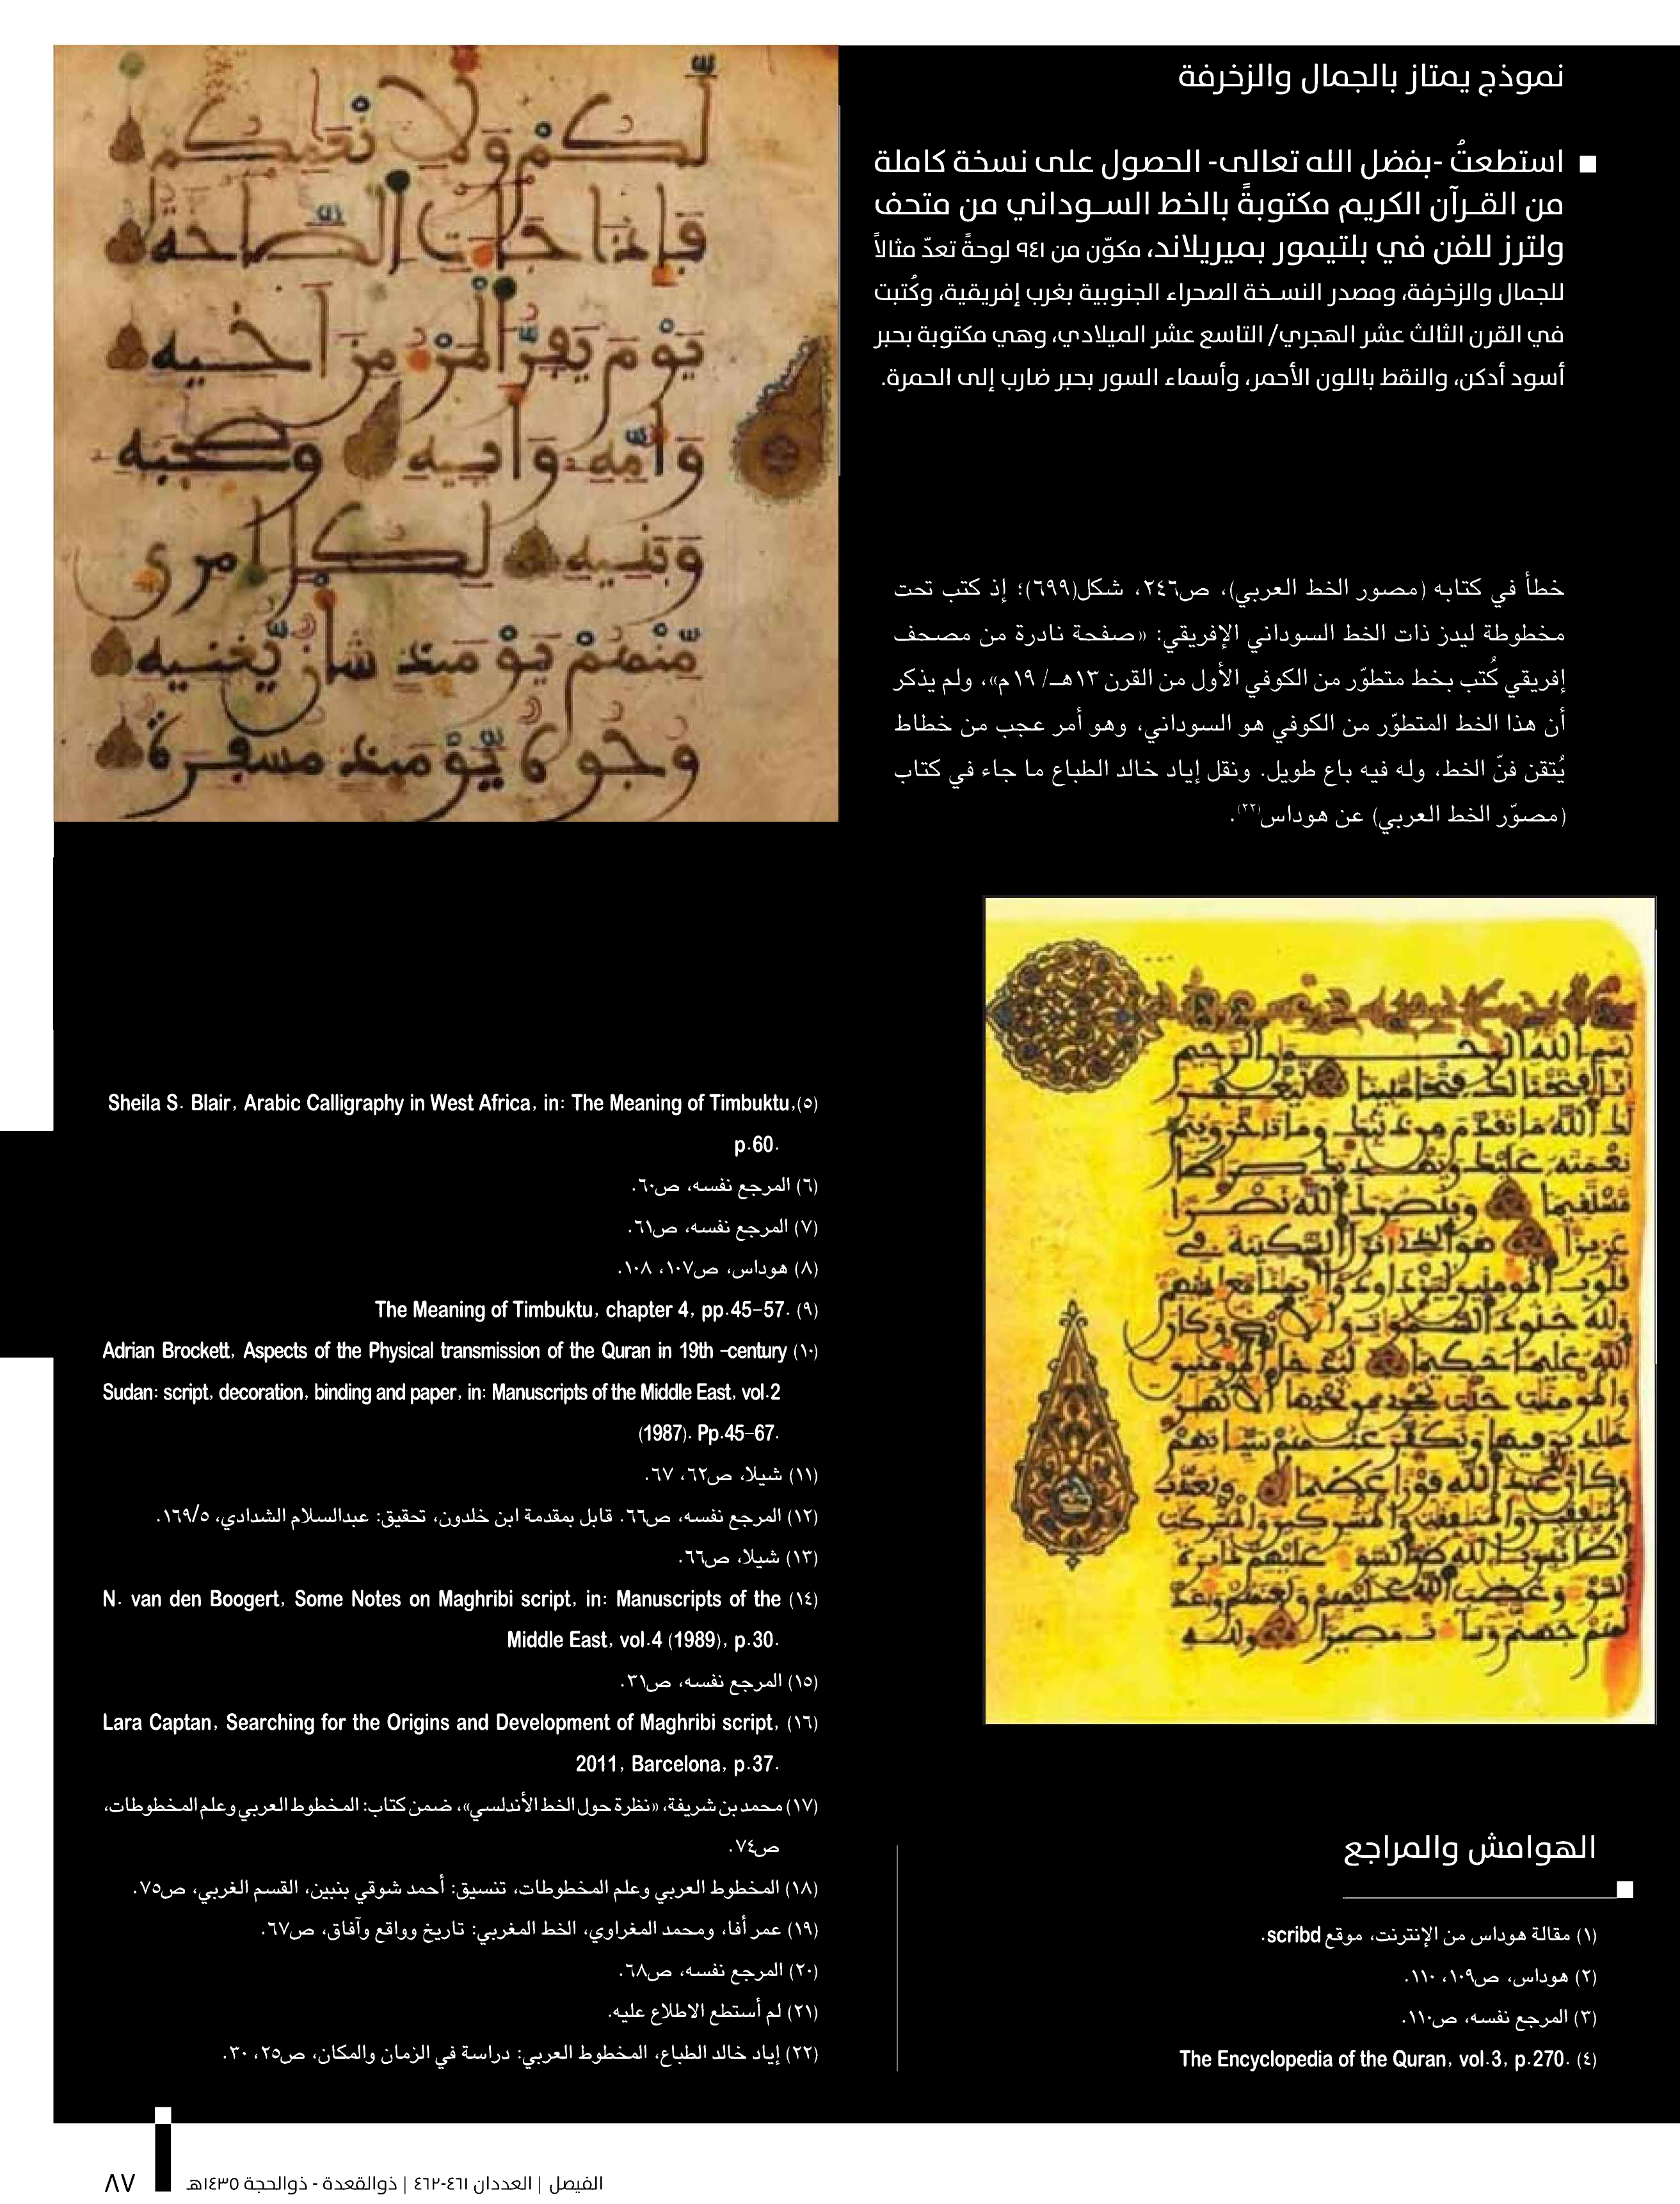 نموذج يمتاز بالجمال والزخرفة
■ استطعتُ -بفضل الله تعالى- الحصول على نسخة كاملة
من القـرآن الكريم مكتوبةً بالخط السـوداني من متحف
ولترز للفن في بلتيمور بميريلاند، مكوّن من ٩٤١ لوحةً تعدّ مثالاً
للجمال والزخرفة، ومصدر النسـخة الصحراء الجنوبية بغرب إفريقية، وكُتبت
في القرن الثالث عشر الهجري/ التاسع عشر الميلادي، وهي مكتوبة بحبر
أسود أدكن، والنقط باللون الأحمر، وأسماء السور بحبر ضارب إلى الحمرة.
لكم ولأنعمكم
فإذا جاءت الصاخة
يوم يفر المرء من أخيه
وأمه وأبيه وصحبته
وبنيه لكل امرئ
منهم يومئذ شأن يغنيه
وجوه يومئذ مسفرة
خطأ في كتابه (مصور الخط العربي)، ص٢٤٦، شكل(٦٩٩)؛ إذ كتب تحت
مخطوطة ليدز ذات الخط السوداني الإفريقي: «صفحة نادرة من مصحف
إفريقي كُتب بخط متطوّر من الكوفي الأول من القرن ١٣هـ/ ١٩م»، ولم يذكر
أن هذا الخط المتطوّر من الكوفي هو السوداني، وهو أمر عجب من خطاط
يُتقن فنّ الخط، وله فيه باع طويل. ونقل إياد خالد الطباع ما جاء في كتاب
(مصوّر الخط العربي) عن هوداس(٢٢).
الهوامش والمراجع
(١) مقالة هوداس من الإنترنت، موقع scribd.
(٢) هوداس، ص١٠٩، ١١٠.
(٣) المرجع نفسه، ص١١٠.
(٤) The Encyclopedia of the Quran, vol.3, p.270.
(٥) Sheila S. Blair, Arabic Calligraphy in West Africa, in: The Meaning of Timbuktu,
p.60.
(٦) المرجع نفسه، ص٦٠.
(٧) المرجع نفسه، ص٦١.
(٨) هوداس، ص١٠٧، ١٠٨.
(٩) The Meaning of Timbuktu, chapter 4, pp.45-57.
(١٠) Adrian Brockett, Aspects of the Physical transmission of the Quran in 19th -century
Sudan: script, decoration, binding and paper, in: Manuscripts of the Middle East, vol.2
(1987). Pp.45-67.
(١١) شيلا، ص٦٢، ٦٧.
(١٢) المرجع نفسه، ص٦٦. قابل بمقدمة ابن خلدون، تحقيق: عبدالسلام الشدادي، ١٦٩/٥.
(١٣) شيلا، ص٦٦.
(١٤) N. van den Boogert, Some Notes on Maghribi script, in: Manuscripts of the
Middle East, vol.4 (1989), p.30.
(١٥) المرجع نفسه، ص٣١.
(١٦) Lara Captan, Searching for the Origins and Development of Maghribi script,
2011, Barcelona, p.37.
(١٧) محمد بن شريفة، «نظرة حول الخط الأندلسي»، ضمن كتاب: المخطوط العربي وعلم المخطوطات،
ص٧٤.
(١٨) المخطوط العربي وعلم المخطوطات، تنسيق: أحمد شوقي بنبين، القسم الغربي، ص٧٥.
(١٩) عمر أفا، ومحمد المغراوي، الخط المغربي: تاريخ وواقع وآفاق، ص٦٧.
(٢٠) المرجع نفسه، ص٦٨.
(٢١) لم أستطع الاطلاع عليه.
(٢٢) إياد خالد الطباع، المخطوط العربي: دراسة في الزمان والمكان، ص٢٥، ٣٠.
الفيصل | العددان ٤٦١-٤٦٢ | ذوالقعدة - ذوالحجة ١٤٣٥هـ
٨٧